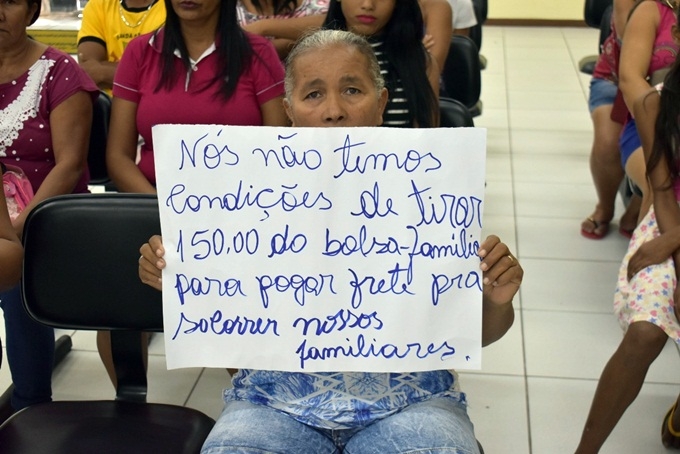 Nós não temos
Condições de tirar
150,00 do bolsa-família
para pagar frete pra
socorrer nossos
familiares.